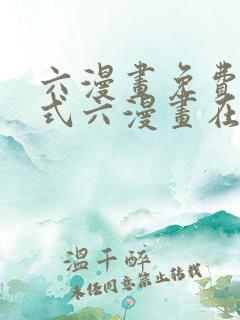 六漫畫免費
式六漫畫在
溫千醉
未经同意禁止转载